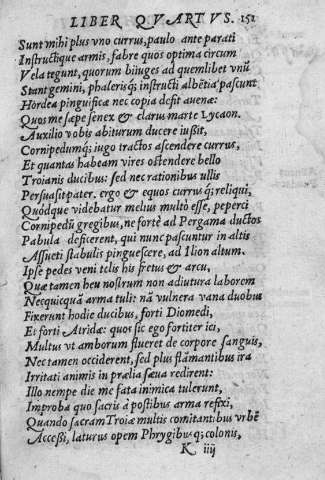 LIBER QVARTVS. 151
Sunt mihi plus vno currus, paulo ante parati
Instructique armis, fabre quos optima circum
Vela tegunt, quorum biiuges ad quemlibet vnũ
Stant gemini, phalerisq; instructi albẽtia pascunt
Hordea pinguifica nec copia defit auenæ:
Quos me sæpe senex & clarus marte Lycaon.
Auxilio vobis abiturum ducere iußit,
Cornipedumq; iugo tractos ascendere currus,
Et quantas habeam vires ostendere bello
Troianis ducibus: sed nec rationibus ullis
Persuasit pater. ergo & equos currus q; reliqui,
Quódque videbatur melius multò esse, peperci
Cornipedũ gregibus, ne fortè ad Pergama ductos
Pabula deficerent, qui nunc pascuntur in altis
Assueti stabulis pinguescere, ad Ilion altum.
Ipse pedes veni telis his fretus & arcu,
Quæ tamen heu nostrum non adiutura laborem
Necquicquã arma tuli: nã vulnera vana duobus
Fixerunt hodie ducibus, forti Diomedi,
Et forti Atridæ: quos sic ego fortiter ici,
Multus vt amborum flueret de corpore sanguis,
Nec tamen occiderent, sed plus flãmantibus ira
Irritati animis in prælia sæua redirent:
Illo nempe die me fata inimica tulerunt,
Improba quo sacris à postibus arma refixi,
Quando sacram Troiæ multis comitantibus vrbẽ
Acceßi, laturus opem Phrygibus q; colonis,
K iiij